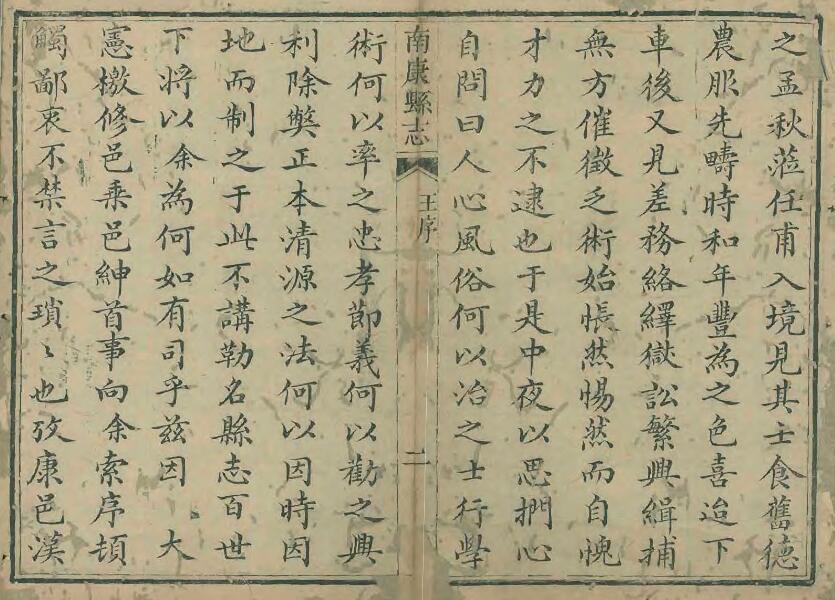 之孟秋蒞任甫入境見其士食舊德
農服先疇時和年豐為之色喜迨下
車後又見差務絡繹獄訟繁興緝捕
無方催徵乏術始悵然惕然而自愧
才力之不逮也于是中夜以思捫心
自問曰人心風俗何以治之士行學
南康縣志
王序
二
術何以率之忠孝節義何以勸之興
利除獘正本清源之法何以因時因
地而制之于此不講勒名縣志百世
下將以余為何如有司乎茲因 大
憲檄修邑乘邑紳首事向余索序頓
觸鄙衷不禁言之瑣〻也攷康邑漢